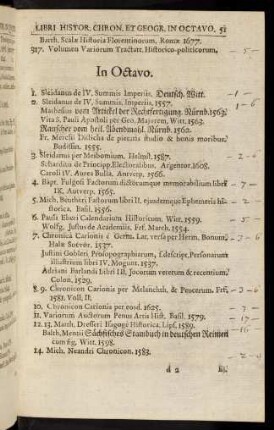 LIBRI HISTOR. CHRON. ET GEOGR. IN OCTAVO. 51
Barth. Scalæ Historia Florentinorum, Romæ 1677.
317. Volumen Variorum Tractat. Historico-politicorum,
In Octavo.
1. Sleidanus de IV. Summis Imperiis. Deutsch. Witt.
2. Sleidanus de IV. Summis Imperiis, 1557.
Mathesius vom Artickel der Rechtfertigung. Nürnb. 1563.
Vita S. Pauli Apostoli per Geo. Majorem, Witt. 1563.
Rauscher vom heil. Abendmahl. Nürnb. 1560.
Fr. Mericii Disticha de pietatis studio & bonis moribus,
Budissin. 1555.
3. Sleidanus per Meibomium. Helmst. 1587.
Schardius de Princip. Electoralibus, Argentor. 1608.
Caroli IV. Aurea Bulla, Antverp. 1566.
4. Bapt. Fulgosi Factorum dictorumque memorabilium libri
IX. Antverp. 1565.
5. Mich. Beutheri Fastorum libri II. ejusdemque Ephemeris historica, Basil. 1556.
6. Pauli Eberi Calendarium Historicum. Witt. 1559.
Wolfg. Justus de Academiis. Frf. March. 1554.
7. Chronica Carionis è Germ. Lat. versa per Herm. Bonnum,
Halæ Suevor. 1537.
Justini Gobleri Prosopographiarum, & descript. Personarum
illustrium libri IV. Mogunt. 1537.
Adriani Barlandi Libri III. Jocorum veterum & recentium
Colon. 1529.
8. 9. Chronicon Carionis per Melanchth. & Peucerum. Frf.
1581. Voll. II.
10. Chronicon Carionis per eosd. 1625.
11. Variorum Auctorum Penus Artis Hist. Basil. 1579.
12. 13. Matth. Dresseri Isagoge Historica. Lips. 1589.
Balth. Mentii Sächsisches Stambuch in deutschen Reimen
cum fig. Witt. 1598.
14. Mich. Neandri Chronicon. 1583.
d 2